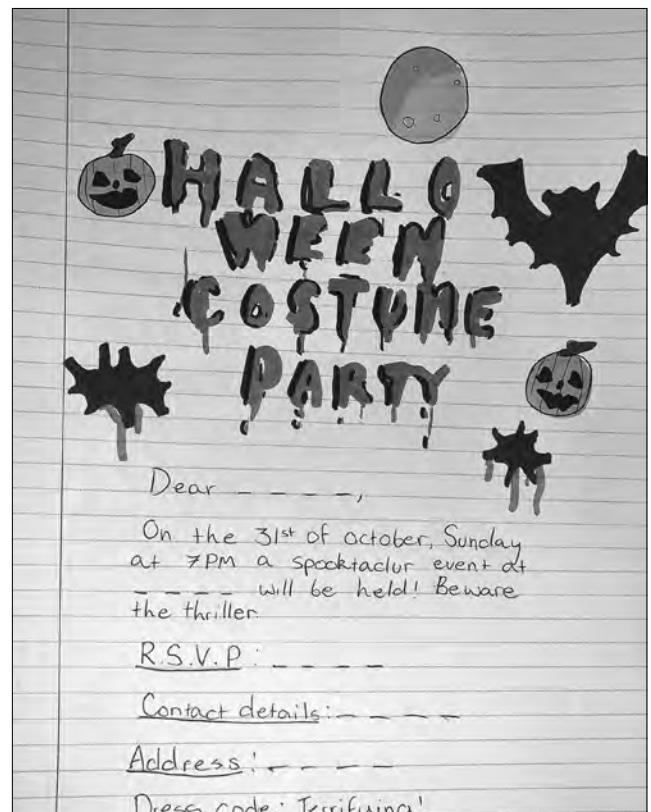 HALLO
WEEN
COSTUME
PARTY
Dear _ _ _ _,
On the 31st of october, Sunday
at 7PM a spooktaclur event at
_ _ _ _ will be held! Beware
the thriller.
R.S.V.P: _ _ _ _
Contact details: _ _ _ _
Address: _ _ _ _
Dress code: Terrifying!